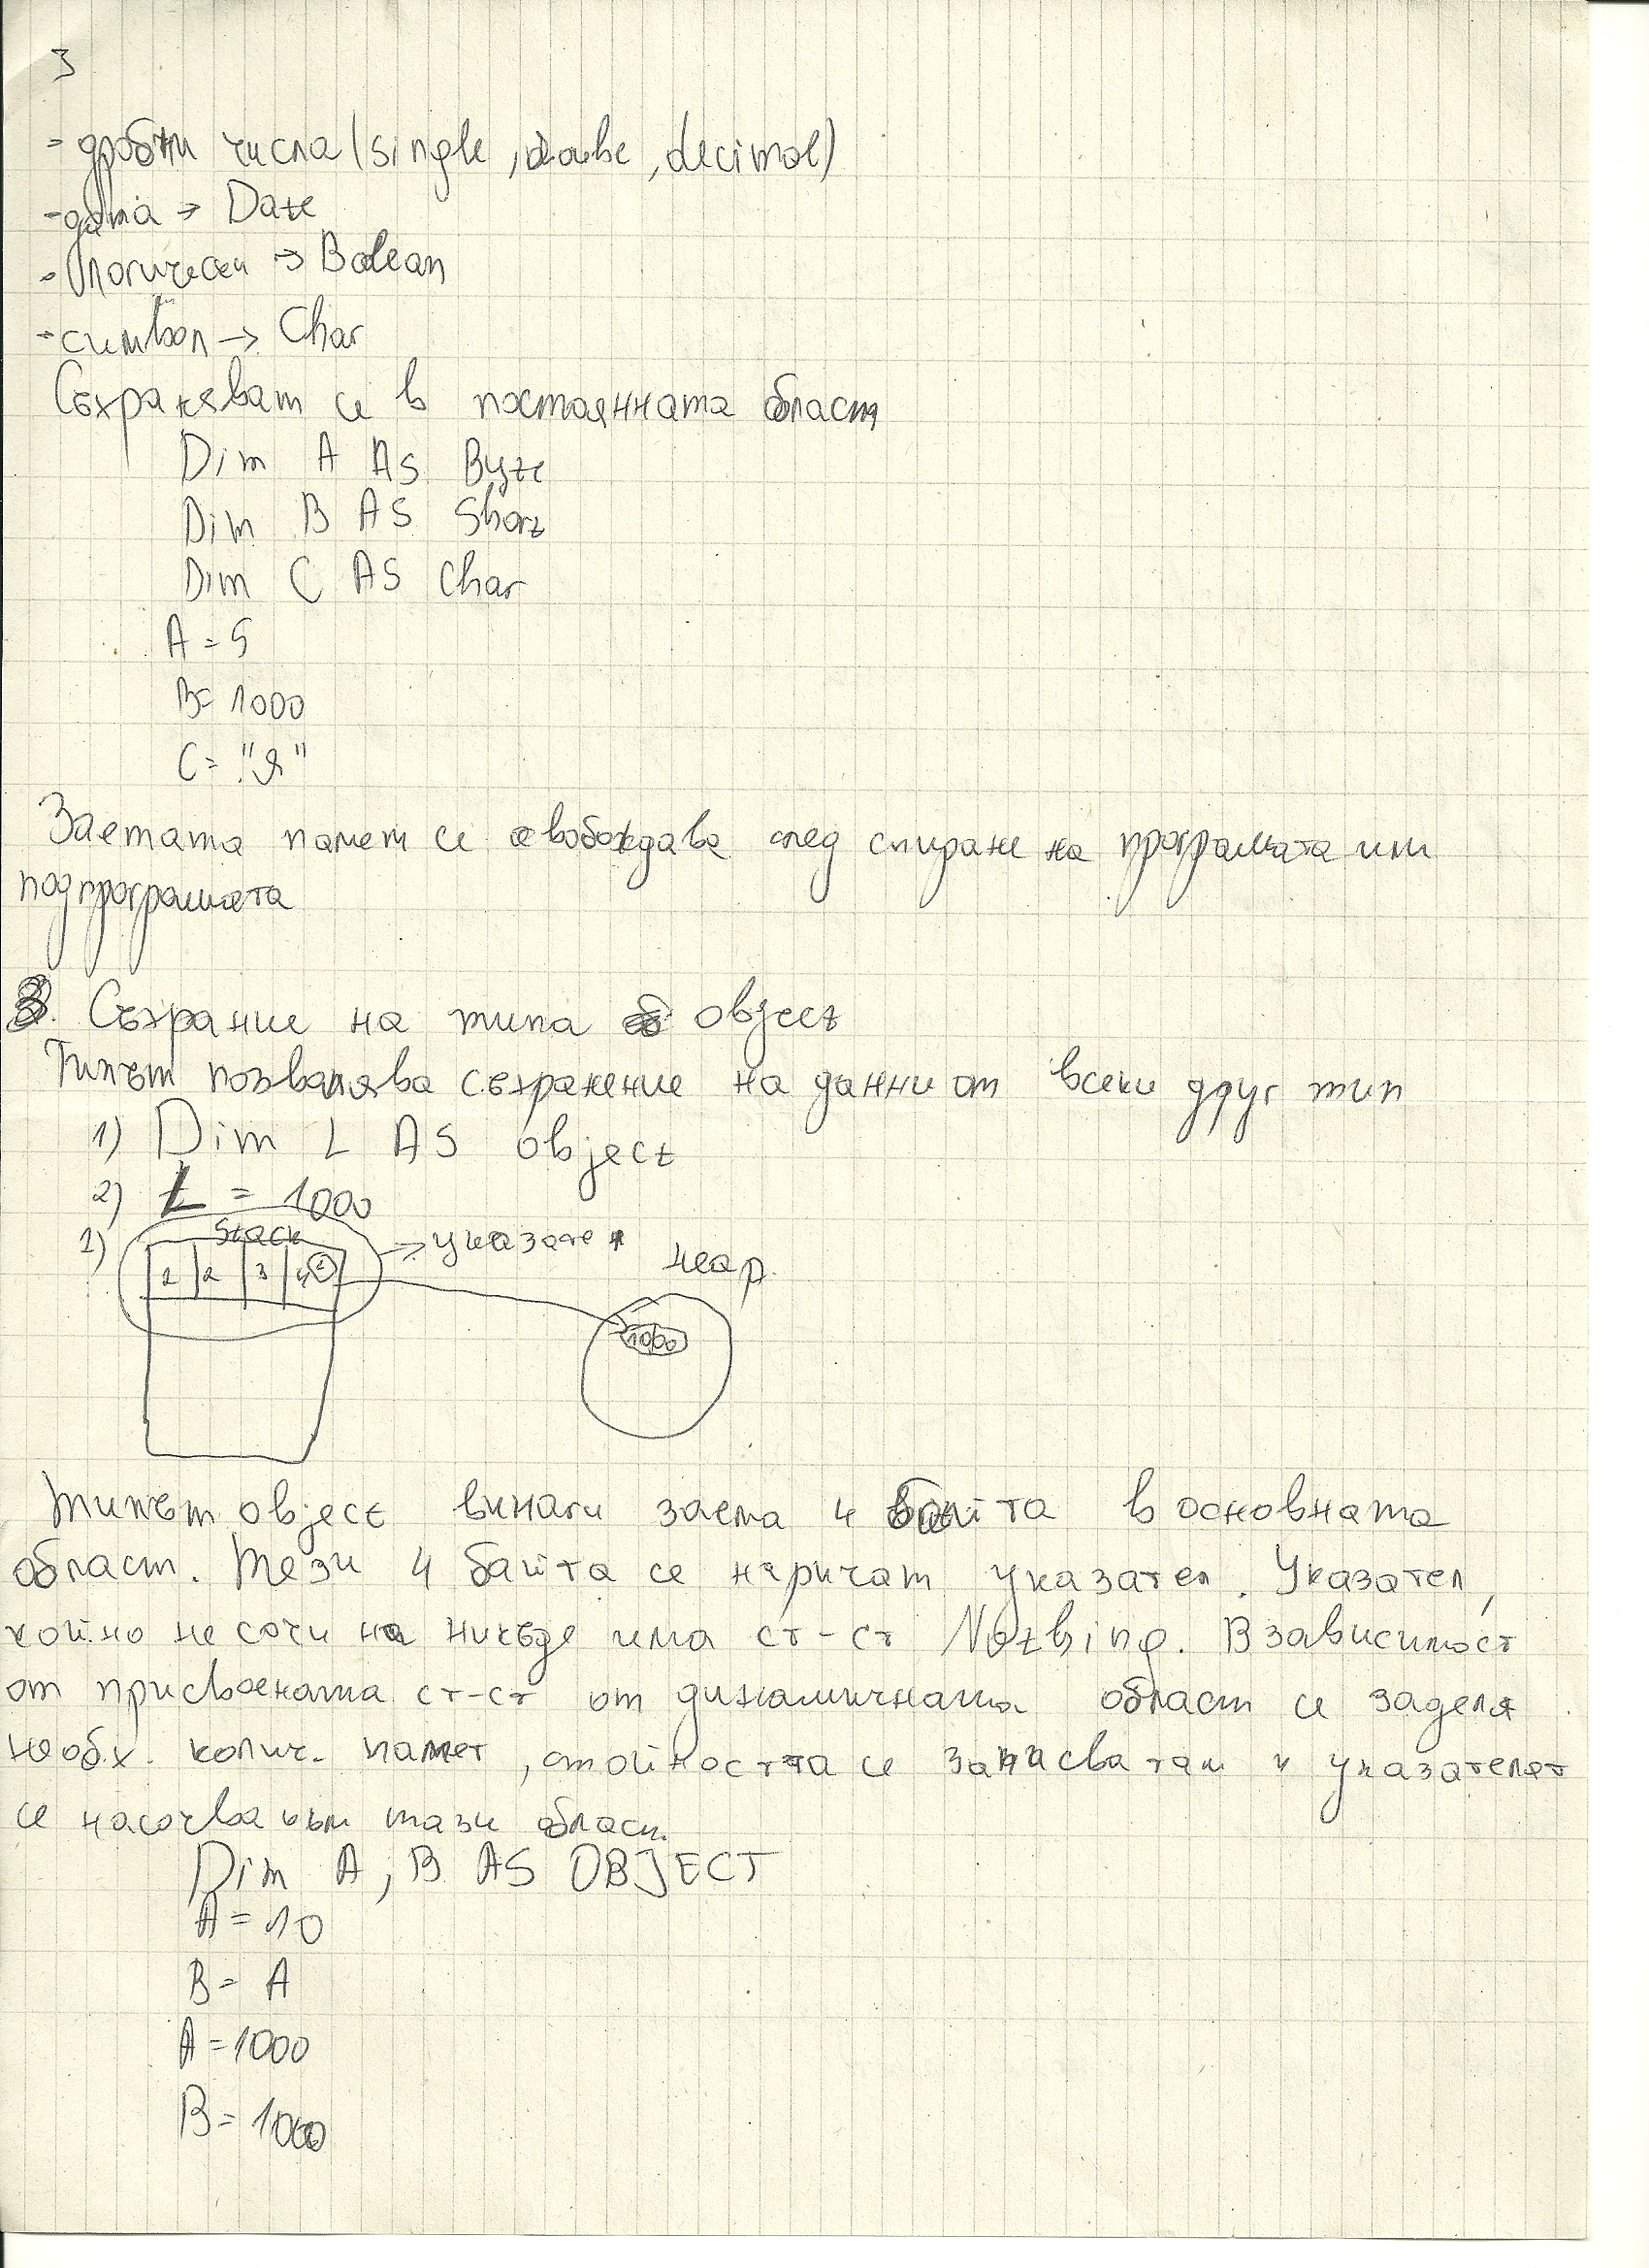 3
- дробни числа (single, double, decimal)
- дата → Date
- логически → Bolean
- символ → Char
Съхраняват се в постоянната област
Dim A AS Byte
Dim B AS Short
Dim C AS Char
A = 5
B = 1000
C = "Я"
Заетата памет се освобождава след спиране на програмата или
подпрограмата
3. Съхрание на типа object
Типът позволява съхранение на данни от всеки друг тип
1) Dim L AS object
2) L = 1000
1) Stack → указател heap
1 2 3 4
1000
Типът object винаги заема 4 байта в основната
област. Тези 4 байта се наричат указател. Указател,
който не сочи на никъде има ст-ст Nothing. В зависимост
от присвоената ст-ст от динамичната област се заделя
необх. колич. памет, стойността се записва там и указателят
се насочва към тази област.
Dim A, B AS OBJECT
A = 10
B = A
A = 1000
B = 1000